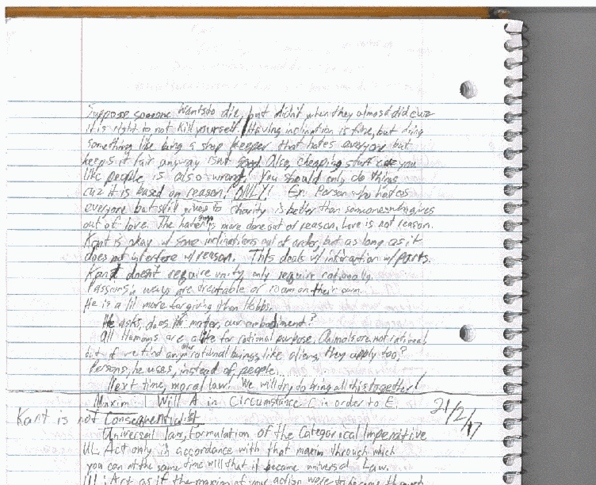 Suppose someone wants to die, but didn't when they almost did cuz
it is right to not kill yourself. Having inclination is fine, but doing
something like being a shop keeper that hates everyone but
keeps it fair anyway isn't good. Also cheaping stuff cuz you
like people is also wrong. You should only do things
cuz it is based on reason! ONLY! Ex: Person who hates
everyone but still gives to charity is better than someone who gives
out of love. The hater is more done out of reason, Love is not reason.
Kant is okay w some inclinations out of order, but as long as it
does not interfere w/ reason. This deals w/ interaction w/ parts.
Kant doesn't require unity, only require rationally.
Passions, ways are or roam on their own.
He is a lil more forgiving than Hobbs.
He asks, does it matter, our embodiment?
All humans are for rational purpose. Animals are not rational
but if we find any other rational beings, like aliens, they apply too?
Persons, he uses, instead of people.
Next time, moral law! We will try to bring all this together!
Maxim: I Will A in Circumstance C in order to E.
21/2/17
Kant is not Consequentialist
Universal law formulation of the Categorical Imperative
UL: Act only in accordance with that maxim through which
you can at the same time will that it become universal Law.
Act as if the maxim of your action were to become through